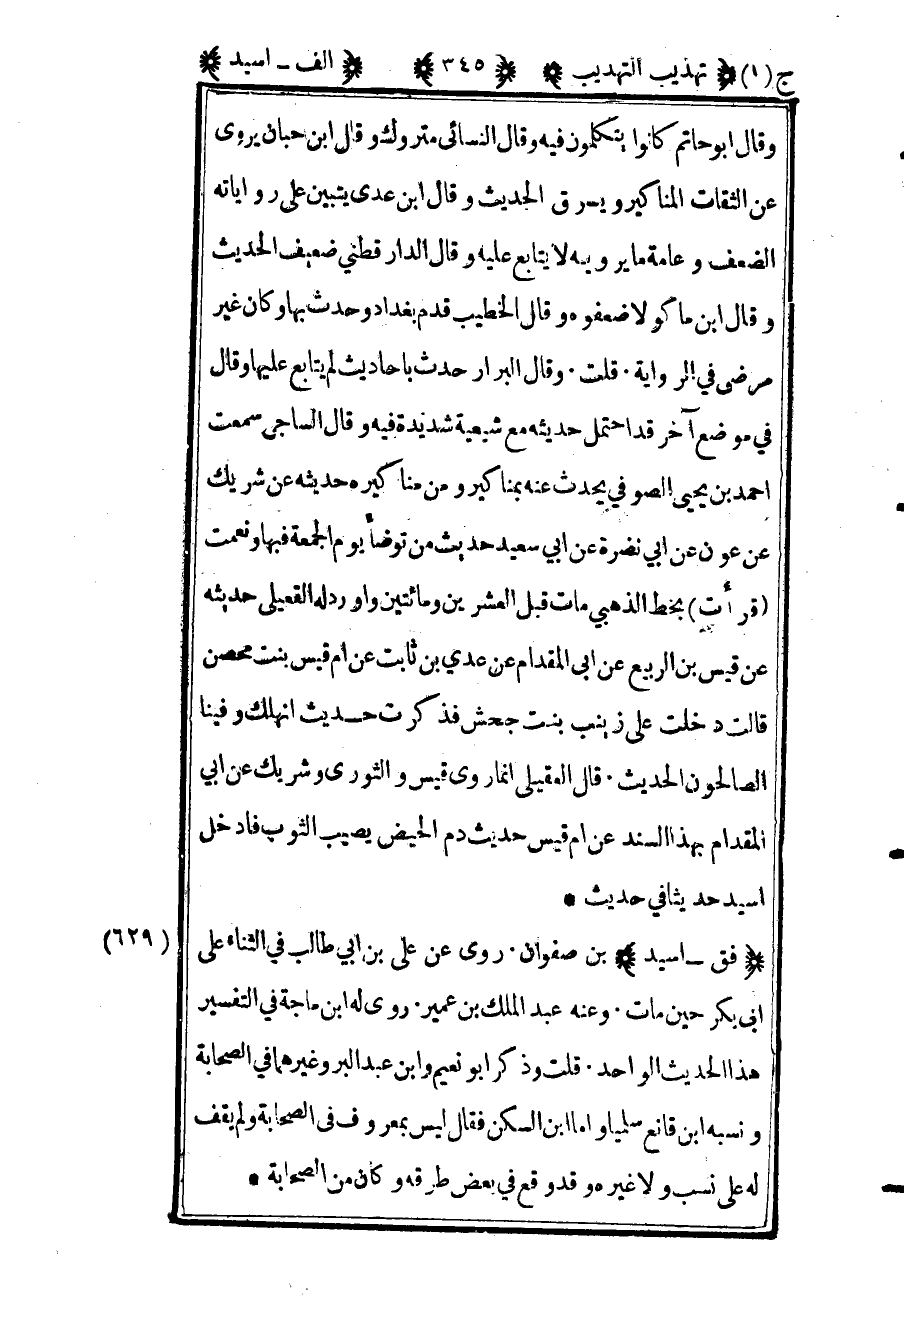 ج (١) ﴿ تهذيب التهذيب ﴾ ﴿ ٣٤٥ ﴾ ﴿ الف ـ اسيد ﴾
وقال ابو حاتم كانوا يتكلمون فيه وقال النسائى متروك وقال ابن حبان يروى
عن الثقات المناكير ويسرق الحديث وقال ابن عدى يتبين على رواياته
الضعف وعامة ما يرويه لا يتابع عليه وقال الدار قطني ضعيف الحديث
وقال ابن ماكولا ضعفوه وقال الخطيب قدم بغداد وحدث بها وكان غير
مرضى في الرواية · قلت · وقال البزار حدث باحاديث لم يتابع عليها وقال
في موضع آخر قد احتمل حديثه مع شيعية شديدة فيه وقال الساجى سمعت
احمد بن يحيى الصوفي يحدث عنه بمناكير ومن مناكيره حديثه عن شريك
عن عون عن ابي نضرة عن ابي سعيد حديث من توضأ يوم الجمعة فبها ونعمت
(قرأت) بخط الذهبي مات قبل العشرين ومائتين واورد له القعيلى حديثه
عن قيس بن الربيع عن ابى المقدام عن عدي بن ثابت عن ام قيس بنت محصن
قالت دخلت على زينب بنت جحش فذكرت حديث انهلك وفينا
الصالحون الحديث · قال العقيلى انما روى قيس والثورى وشريك عن ابي
المقدام بهذا السند عن ام قيس حديث دم الحيض يصيب الثوب فادخل
اسيد حديثا في حديث •
﴿ فق ـ اسيد ﴾ بن صفوان · روى عن على بن ابي طالب في الثناء على (٦٢٩)
ابى بكر حين مات · وعنه عبد الملك بن عمير · روى له ابن ماجة في التفسير
هذا الحديث الواحد · قلت وذكر ابو نعيم وابن عبد البر وغيرهما في الصحابة
ونسبه ابن قانع سلميا واما ابن السكن فقال ليس بمعروف فى الصحابة ولم يقف
له على نسب ولا غيره وقد وقع في بعض طرقه وكان من الصحابة •